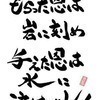 もらった恩は
岩に刻め
与えた恩は
水に